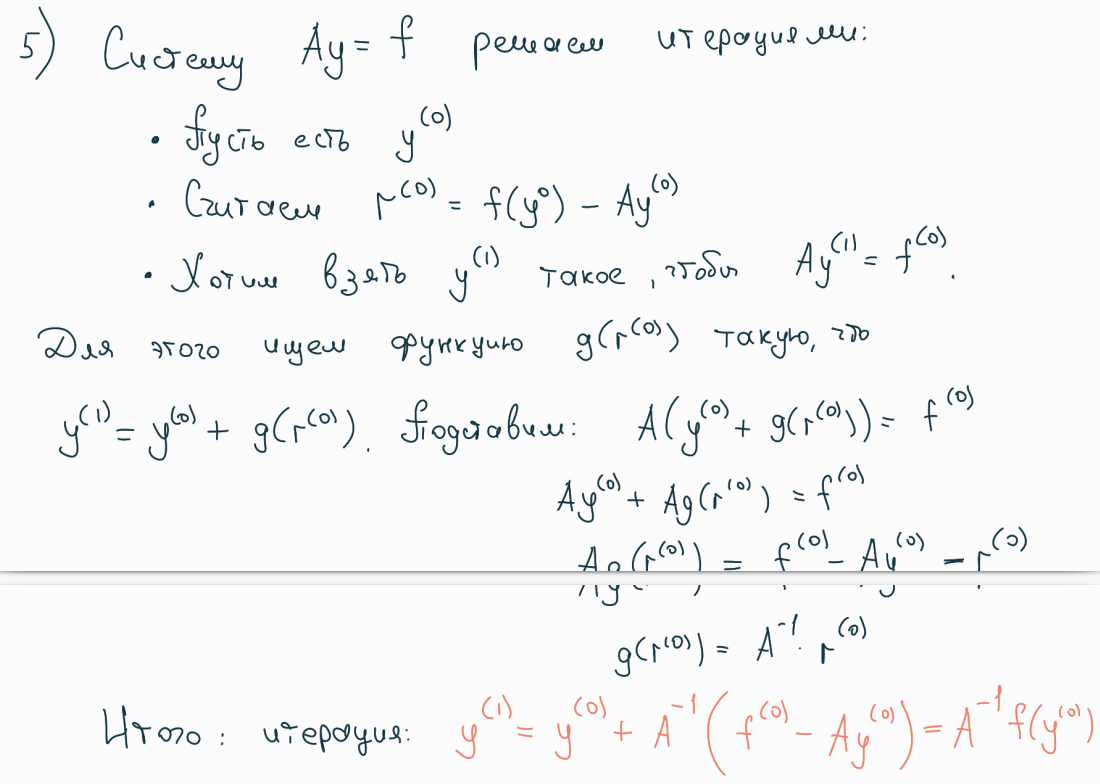 5) Систему Ay = f решаем итерациями:
• Пусть есть y^(0)
• Считаем r^(0) = f(y^0) − Ay^(0)
• Хотим взять y^(1) такое, чтобы Ay^(1) = f^(0).
Для этого ищем функцию g(r^(0)) такую, что
y^(1) = y^(0) + g(r^(0)). Подставим: A(y^(0) + g(r^(0))) = f^(0)
Ay^(0) + Ag(r^(0)) = f^(0)
Ag(r^(0)) = f^(0) − Ay^(0) − r^(0)
g(r^(0)) = A^-1 · r^(0)
Итого: итерация: y^(1) = y^(0) + A^-1 (f^(0) − Ay^(0)) = A^-1 f(y^(0))